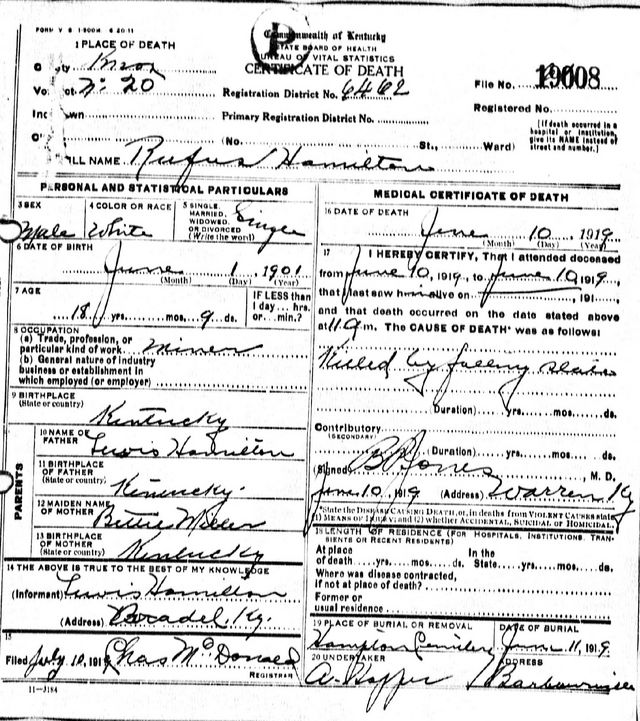 FORM V S 1-500M 6 20-11
Commonwealth of Kentucky
STATE BOARD OF HEALTH
BUREAU OF VITAL STATISTICS
CERTIFICATE OF DEATH
1 PLACE OF DEATH
Knox
No. 20
Registration District No. 6462
File No. 19008
Primary Registration District No.
Registered No.
(No. St., Ward)
[If death occurred in a hospital or institution, give its NAME instead of street and number.]
FULL NAME Rufus Hamilton
PERSONAL AND STATISTICAL PARTICULARS
3 SEX
Male
4 COLOR OR RACE
White
5 SINGLE, MARRIED, WIDOWED OR DIVORCED (Write the word)
Single
6 DATE OF BIRTH
June 1, 1901
(Month) (Day) (Year)
7 AGE
18 yrs. mos. 9 ds.
IF LESS than 1 day ... hrs. or ... min.?
8 OCCUPATION
(a) Trade, profession, or particular kind of work Miner
(b) General nature of industry
business or establishment in
which employed (or employer)
9 BIRTHPLACE
(State or country)
Kentucky
PARENTS
10 NAME OF FATHER
Lewis Hamilton
11 BIRTHPLACE OF FATHER (State or country)
Kentucky.
12 MAIDEN NAME OF MOTHER
Bettie Miller
13 BIRTHPLACE OF MOTHER (State or country)
Kentucky
14 THE ABOVE IS TRUE TO THE BEST OF MY KNOWLEDGE
(Informant) Lewis Hamilton
(Address) Ky.
15
Filed July 10, 1919 Chas McDonald
REGISTRAR
11-J184
MEDICAL CERTIFICATE OF DEATH
16 DATE OF DEATH
June 10, 1919
(Month) (Day) (Year)
17 I HEREBY CERTIFY, That I attended deceased
from June 10, 1919, to June 10, 1919,
that I last saw him alive on , 191 ,
and that death occurred on the date stated above
at 11 9 m. The CAUSE OF DEATH* was as follows:
Killed by falling slate
(Duration) yrs. mos. ds.
Contributory
(SECONDARY)
(Duration) yrs. mos. ds.
(Signed) B P Jones, M. D.
June 10, 1919 (Address) Warren Ky
*State the DISEASE CAUSING DEATH, or, in deaths from VIOLENT CAUSES state
(1) MEANS OF INJURY; and (2) whether ACCIDENTAL, SUICIDAL or HOMICIDAL.
18 LENGTH OF RESIDENCE (FOR HOSPITALS, INSTITUTIONS, TRANSIENTS OR RECENT RESIDENTS)
At place In the
of death yrs. mos. ds. State yrs. mos. ds.
Where was disease contracted,
if not at place of death?
Former or
usual residence
19 PLACE OF BURIAL OR REMOVAL
Hampton Cemetery
DATE OF BURIAL
June 11, 1919
20 UNDERTAKER
A. Hopper
ADDRESS
Barbourville